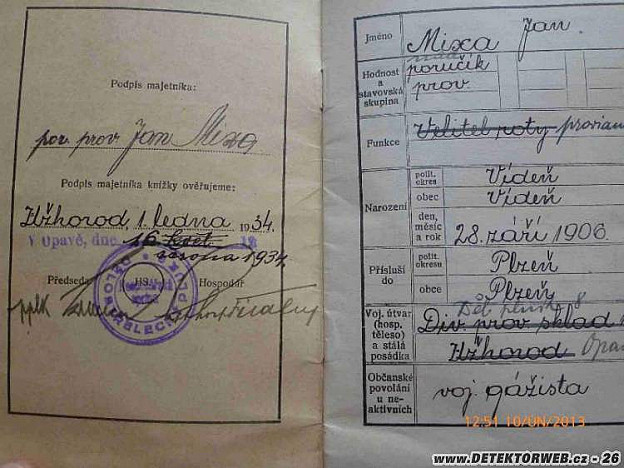 Podpis majetníka:
por. prov Jan Mixa
Podpis majetníka knížky ověřujeme:
Užhorod, 1. ledna 1934.
V Opavě, dne 16. květ. 19
srpna 1934.
Předseda
Hospodář
pplk
Jméno
Mixa Jan
Hodnost
a
stavovská
skupina
poručík
prov.
Funkce
Velitel roty provian
Narození
polit.
okres
Vídeň
obec
Vídeň
den,
měsíc
a rok
28. září 1906.
Přísluší
do
polit.
okresu
Plzeň
obce
Plzeň
Voj. útvar
(hosp.
těleso)
a stálá
posádka
8
Div. prov. sklad
Užhorod Opav
Občanské
povolání
u ne-
aktivních
voj. gážista
12:51 10/ÚN/2013
www.DETEKTORWEB.cz - 26